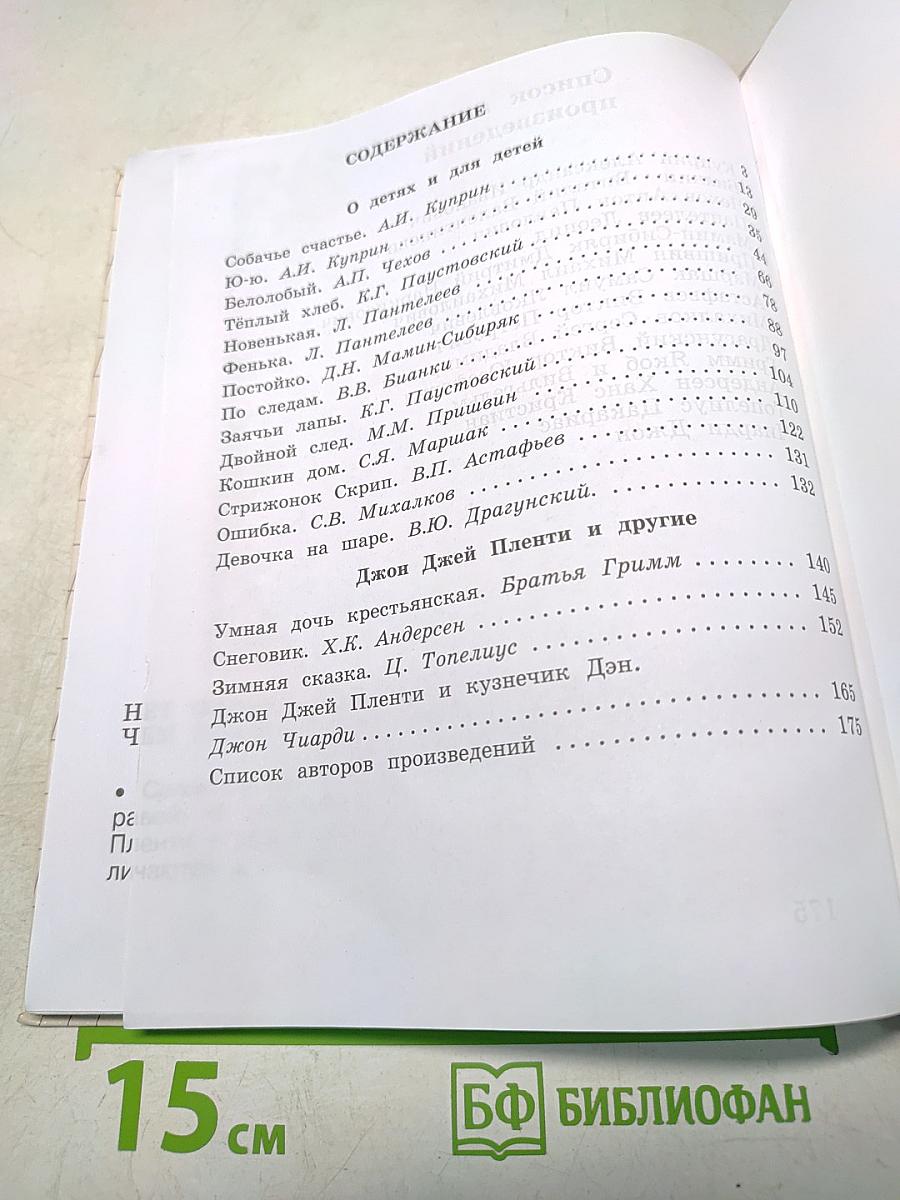 СОДЕРЖАНИЕ
О детях и для детей
Собачье счастье. А.И. Куприн 3
Ю-ю. А.И. Куприн 13
Белолобый. А.П. Чехов 29
Тёплый хлеб. К.Г. Паустовский 35
Новенькая. Л. Пантелеев 44
Фенька. Л. Пантелеев 68
Постойко. Д.Н. Мамин-Сибиряк 78
По следам. В.В. Бианки 88
Заячьи лапы. К.Г. Паустовский 97
Двойной след. М.М. Пришвин 104
Кошкин дом. С.Я. Маршак 110
Стрижонок Скрип. В.П. Астафьев 122
Ошибка. С.В. Михалков 131
Девочка на шаре. В.Ю. Драгунский. 132
Джон Джей Пленти и другие
Умная дочь крестьянская. Братья Гримм 140
Снеговик. Х.К. Андерсен 145
Зимняя сказка. Ц. Топелиус 152
Джон Джей Пленти и кузнечик Дэн.
Джон Чиарди 165
Список авторов произведений 175
15 см
БФ БИБЛИОФАН